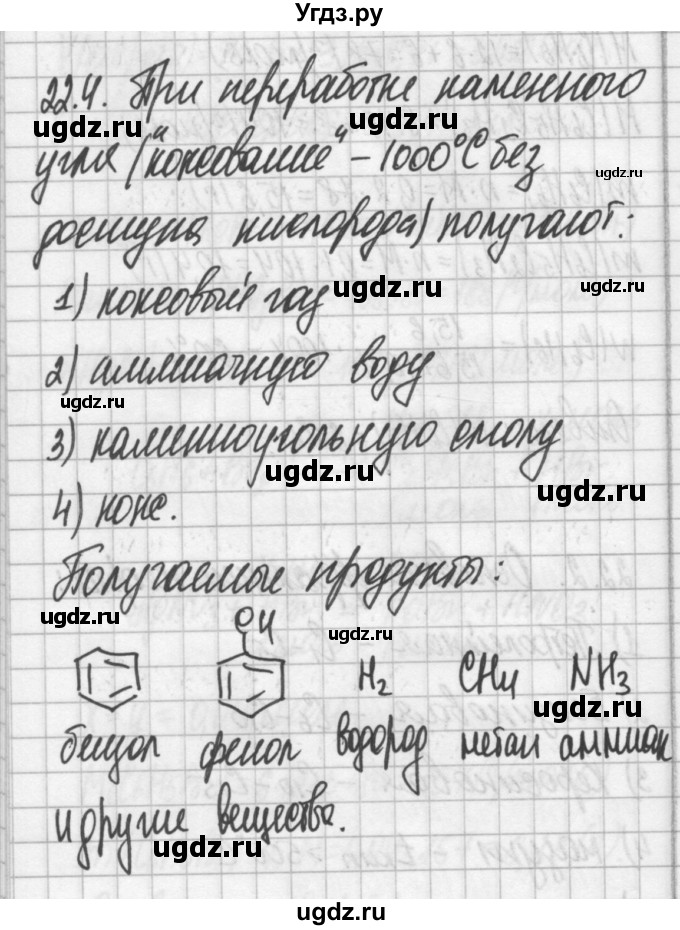 Угдз.ру
22.4. При переработке каменного
угля ("коксование" - 1000°С без
доступа кислорода) получают:
1) коксовый газ
2) аммиачную воду
3) каменноугольную смолу
4) кокс.
Получаемые продукты:
OH
H2 CH4 NH3
бензол фенол водород метан аммиак
и другие вещества.
ugdz.ru
ugdz.ru
ugdz.ru
ugdz.ru
ugdz.ru
ugdz.ru
ugdz.ru
ugdz.ru
ugdz.ru
ugdz.ru
ugdz.ru
ugdz.ru
ugdz.ru